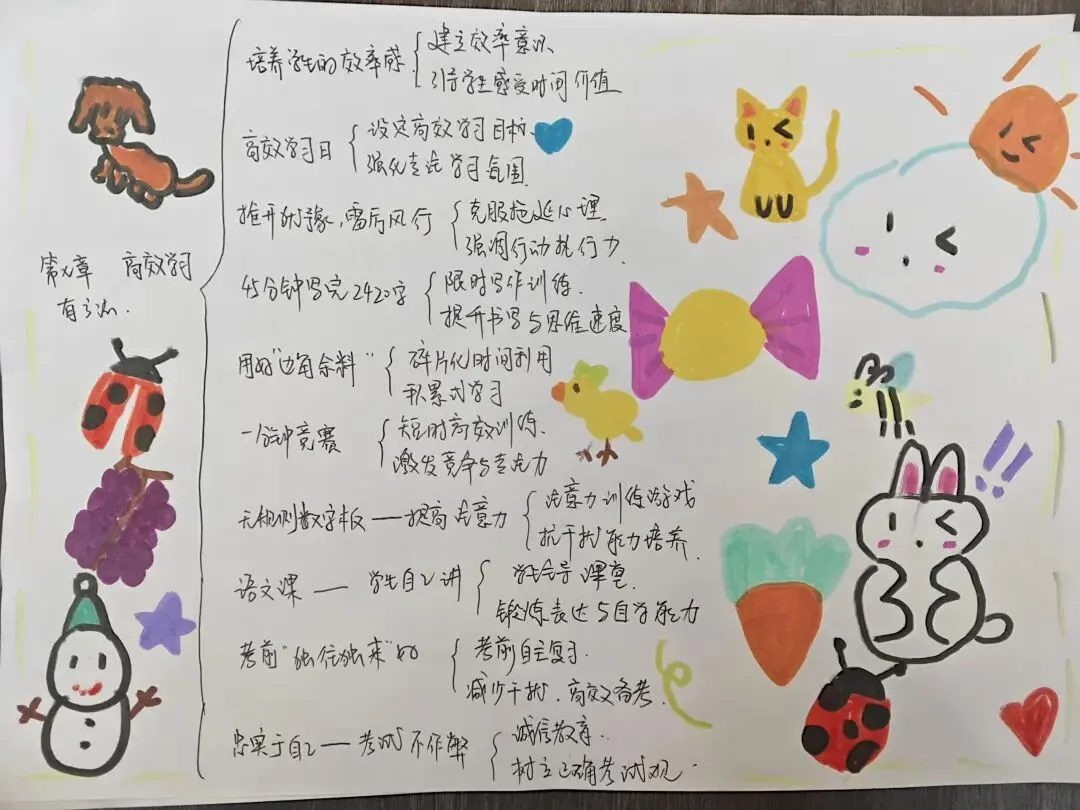 第九章 高效学习
有方法.
培养学生的效率感
建立效率意识
引导学生感受时间价值
高效学习日
设定高效学习目标.
强化专注学习氛围.
推开犹豫,雷厉风行
克服拖延心理
强调行动执行力.
45分钟写完2420字
限时写作训练.
提升书写与思维速度
用好"边角余料"
碎片化时间利用
积累式学习
一分钟竞赛
短时高效训练.
激发竞争与专注力
无规则数字板——提高注意力
注意力训练游戏
抗干扰能力培养.
语文课——学生自己讲
学生主导课堂
锻炼表达与自学能力
考前"独往独来"好
考前自主复习.
减少干扰.高效备考.
忠实于自己——考试不作弊
诚信教育.
树立正确考试观.